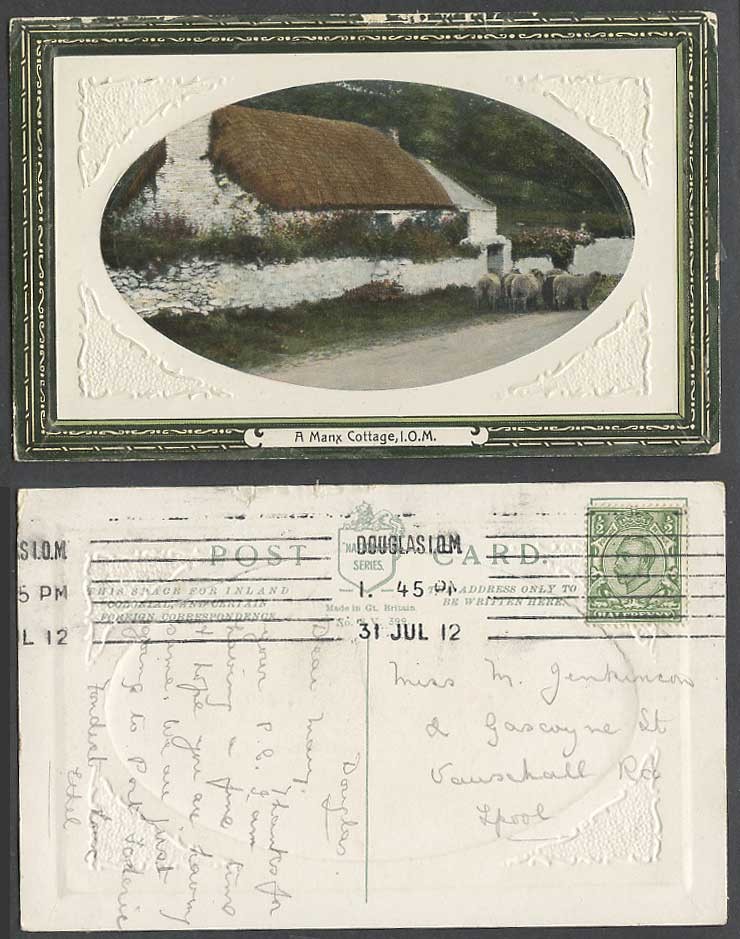 A Manx Cottage, I.O.M.
POST CARD.
SERIES.
THIS SPACE FOR INLAND
COLONIAL, AND CERTAIN
FOREIGN CORRESPONDENCE.
Made in Gt. Britain.
ADDRESS ONLY TO
BE WRITTEN HERE.
S I.O.M
5 PM
L 12
DOUGLAS I.O.M
1. 45 PM
31 JUL 12
Douglas.
Dear Mary,
Thanks for
your P.C. I am
having a fine time
& hope you are having
same. We are just
going to Port Soderic
Fondest Love
Ethel
Miss M. Jenkinson
2 Gascoyne St
Vauxhall Rd
Lpool